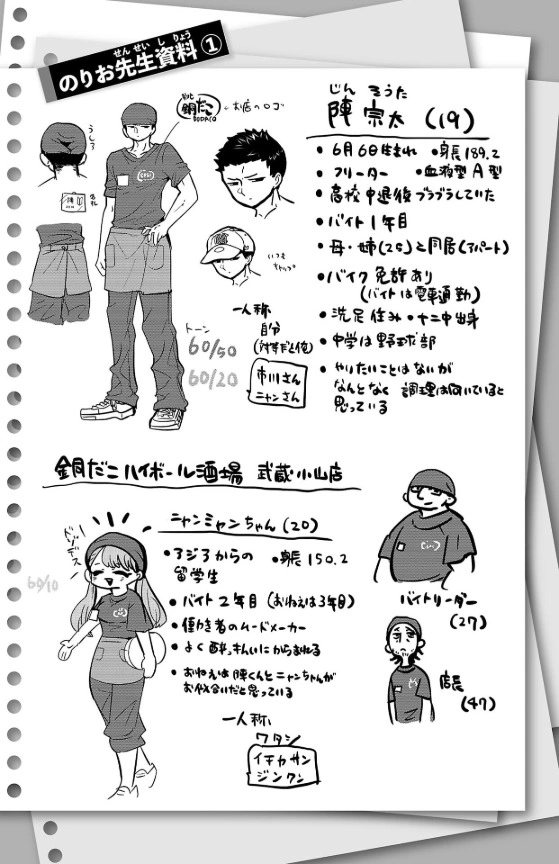 せんせいしりょう
のりお先生資料①
銅だこ
DODACO
←お店のロゴ
うしろ
名札
いつも
キャップ
じん そうた
陣 宗太 (19)
・6月6日生まれ ・身長189.2
・フリーター ・血液型A型
・高校中退後ブラブラしていた
・バイト1年目
・母・姉(25)と同居(アパート)
・バイク免許あり
(バイトは電車通勤)
・洗足住み・十二中出身
・中学は野球部
・やりたいことはないが
なんとなく調理は向いていると
思っている
一人称
自分
(対等だと俺)
市川さん
ニャンさん
トーン
60/50
60/20
銅だこハイボール酒場 武蔵小山店
ドゾデス
60/10
ニャンミャンちゃん(20)
・ヨジョからの
留学生 ・身長150.2
・バイト2年目(おねえは3年目)
・働き者のムードメーカー
・よく酔っぱらいにからまれる
・おねえは陣くんとニャンちゃんが
お似合いだと思っている
一人称
ワタシ
イチカサン
ジンクン
バイトリーダー
(27)
店長
(47)